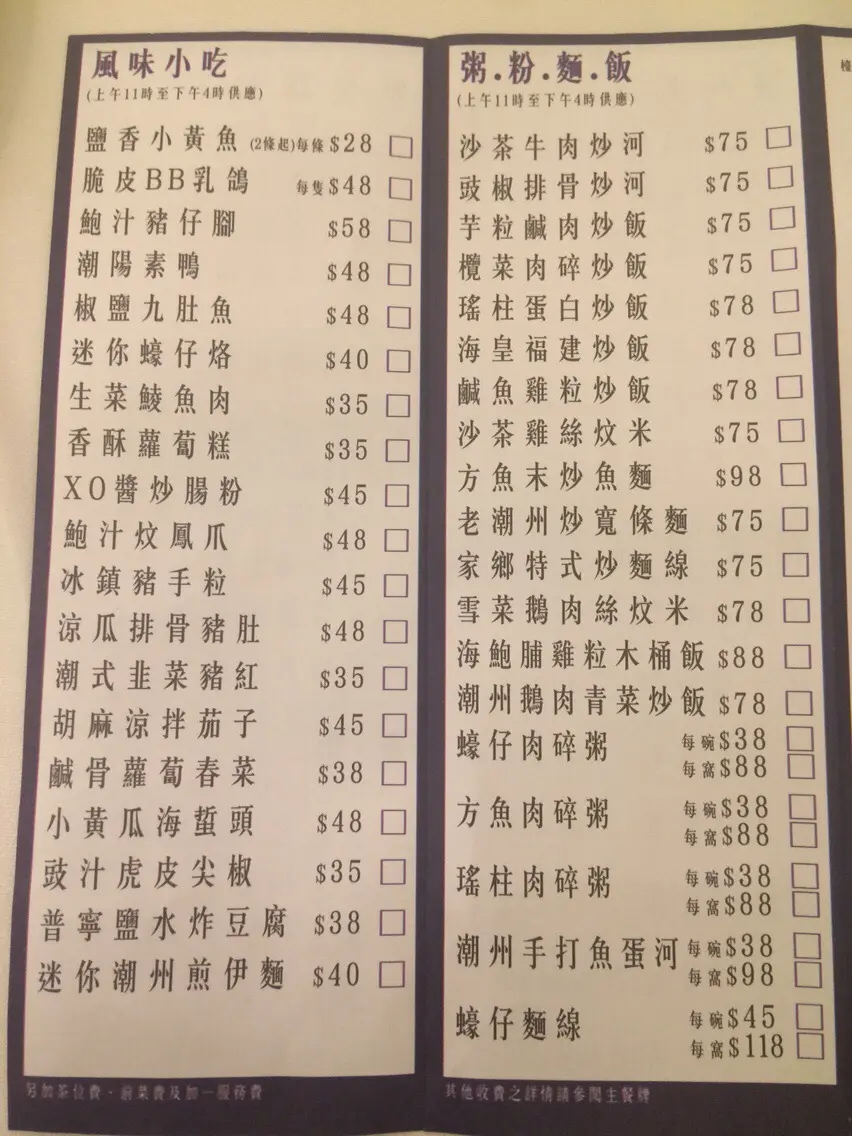 風味小吃
(上午11時至下午4時供應)
鹽香小黃魚 (2條起)每條 $28
脆皮BB乳鴿 每隻 $48
鮑汁豬仔腳 $58
潮陽素鴨 $48
椒鹽九肚魚 $48
迷你蠔仔烙 $40
生菜鯪魚肉 $35
香酥蘿蔔糕 $35
XO醬炒腸粉 $45
鮑汁炆鳳爪 $48
冰鎮豬手粒 $45
涼瓜排骨豬肚 $48
潮式韭菜豬紅 $35
胡麻涼拌茄子 $45
鹹骨蘿蔔春菜 $38
小黃瓜海蜇頭 $48
豉汁虎皮尖椒 $35
普寧鹽水炸豆腐 $38
迷你潮州煎伊麵 $40
另加茶位費、前菜費及加一服務費
粥.粉.麵.飯
(上午11時至下午4時供應)
沙茶牛肉炒河 $75
豉椒排骨炒河 $75
芋粒鹹肉炒飯 $75
欖菜肉碎炒飯 $75
瑤柱蛋白炒飯 $78
海皇福建炒飯 $78
鹹魚雞粒炒飯 $78
沙茶雞絲炆米 $75
方魚末炒魚麵 $98
老潮州炒寬條麵 $75
家鄉特式炒麵線 $75
雪菜鵝肉絲炆米 $78
海鮑脯雞粒木桶飯 $88
潮州鵝肉青菜炒飯 $78
蠔仔肉碎粥 每碗 $38
每窩 $88
方魚肉碎粥 每碗 $38
每窩 $88
瑤柱肉碎粥 每碗 $38
每窩 $88
潮州手打魚蛋河 每碗 $38
每窩 $98
蠔仔麵線 每碗 $45
每窩 $118
其他收費之詳情請參閱主餐牌